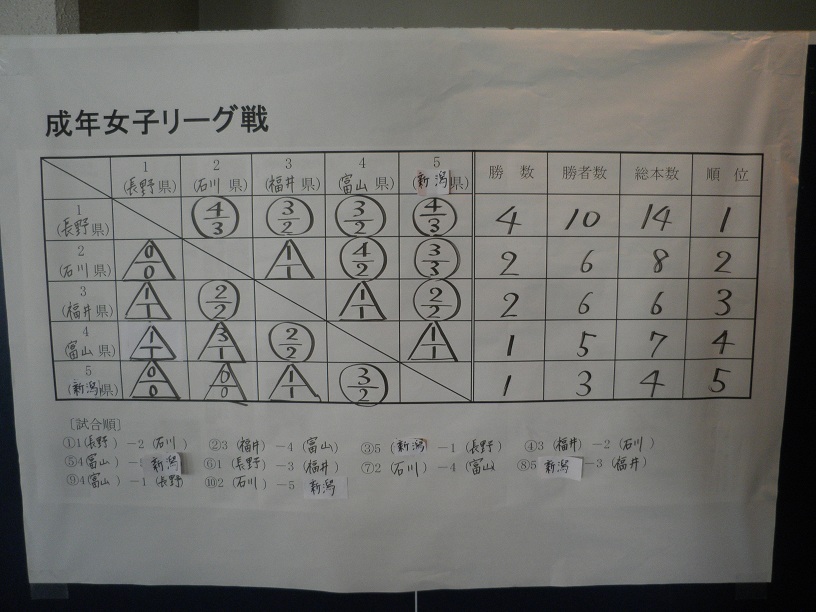 成年女子リーグ戦
1 2 3 4 5
(長野県) (石川 県) (福井 県) (富山 県) (新潟県) 勝 数 勝者数 総本数 順 位
1 (長野県) 4/3 3/2 3/2 4/3 4 10 14 1
2 (石川 県) 0/0 1/1 4/2 3/3 2 6 8 2
3 (福井 県) 1/1 2/2 1/1 2/2 2 6 6 3
4 (富山 県) 1/1 3/1 2/2 1/1 1 5 7 4
5 (新潟県) 0/0 0/0 1/1 3/2 1 3 4 5
[試合順]
①1(長野) -2(石川) ②3(福井) -4(富山) ③5(新潟) -1(長野) ④3(福井) -2(石川)
⑤4(富山) - 新潟 ⑥1(長野) -3(福井) ⑦2(石川) -4(富山) ⑧5 新潟 -3(福井)
⑨4(富山) -1(長野 ⑩2(石川) -5 新潟